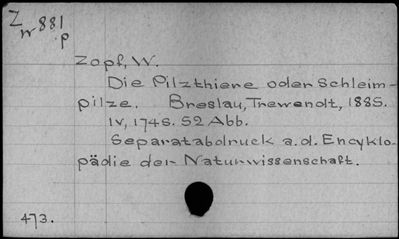 Z
W 881
p
Zopf, W.
Die Pilzthiere oder Schleim-
pilze. Breslau, Trewendt, 1885.
IV, 174 S. 52 Abb.
Separatabdruck a. d. Encyklo-
pädie der Naturwissenschaft.
473.